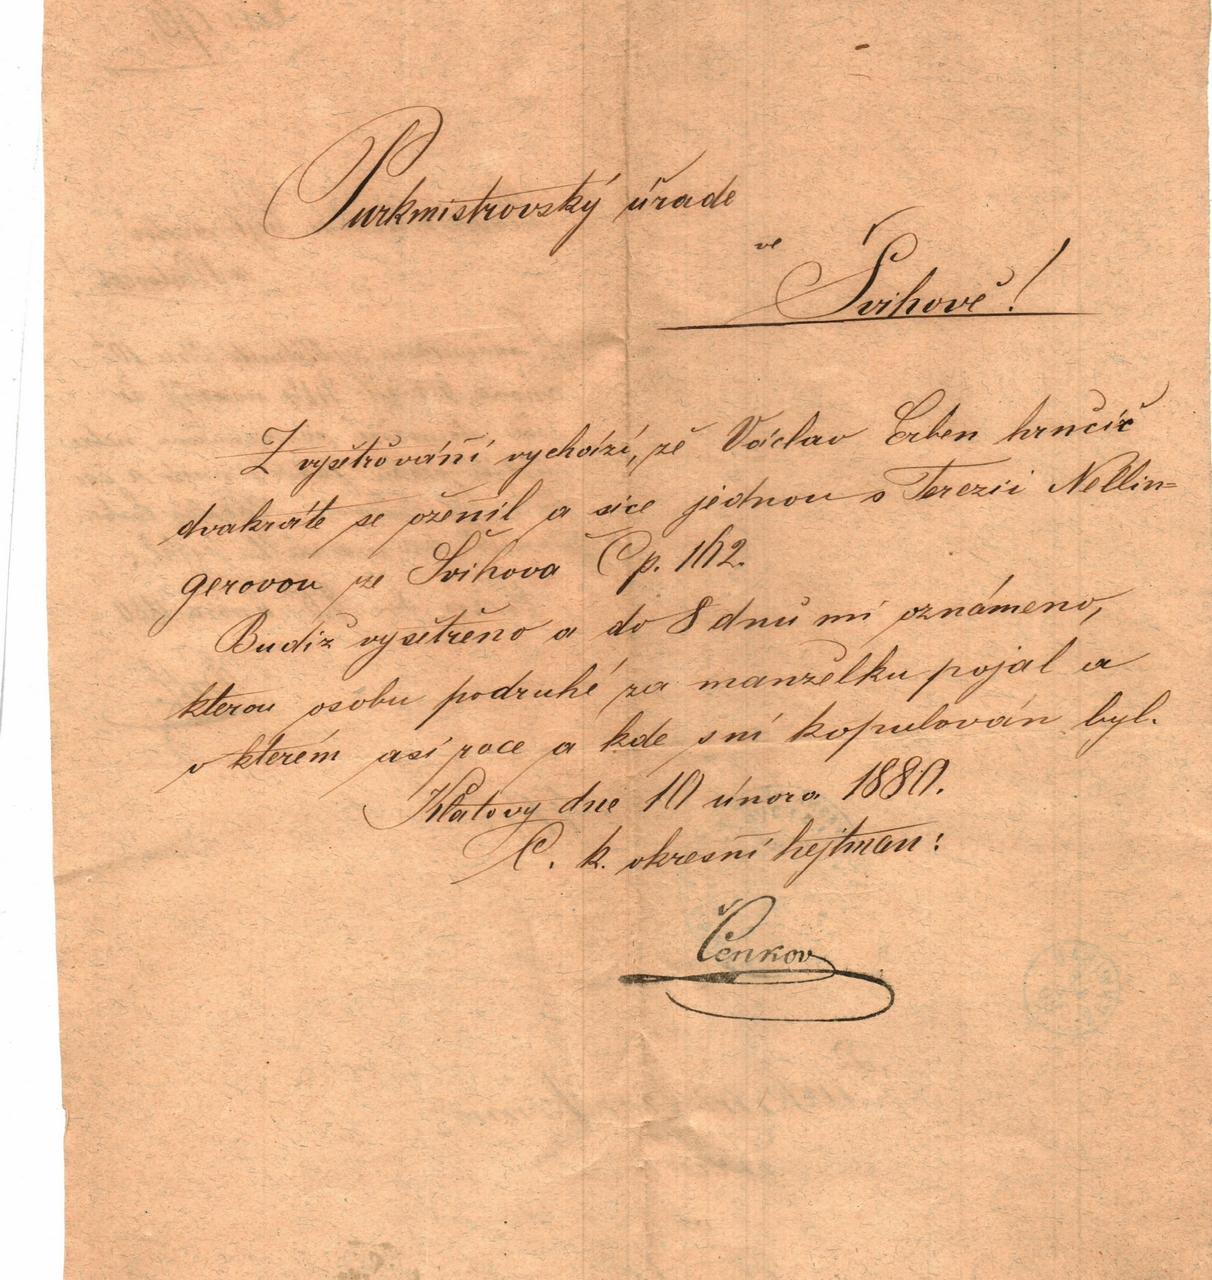 Purkmistrovský úřade
ve
Švihově!
Z vyšetřování vychází, že Václav Erben hrnčíř
dvakráte se oženil a sice jednou s Terezií Nellin=
gerovou ze Švihova Čp. 112.
Budiž vyšetřeno a do 8 dnů mi oznámeno,
kterou osobu podruhé za manželku pojal a
v kterém asi roce a kde s ní kopulován byl.
Klatovy dne 10 února 1880.
C. k. okresní hejtman:
Čenkov